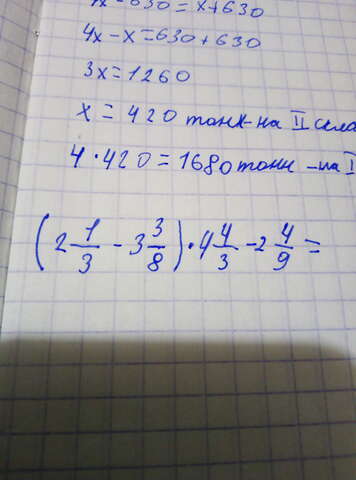 4x - 630 = x + 630
4x - x = 630 + 630
3x = 1260
x = 420 тонн - на II скла
4 · 420 = 1680 тонн - на I
(2 1/3 - 3 3/8) · 4 4/3 - 2 4/9 =